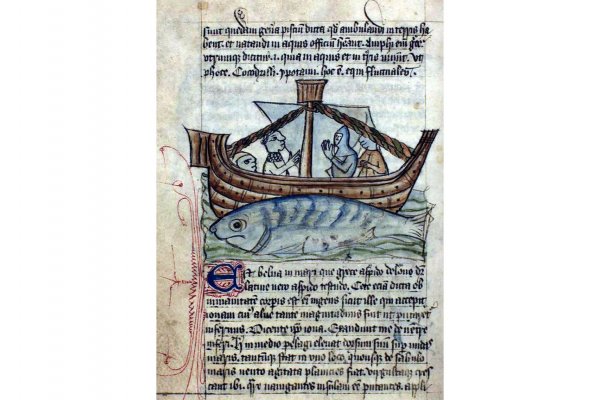 sunt quedam gen̅a pisciu̅ dicta qd̅ ambulandi in terris ha
bent. et natandi in aquis officiu̅ Amphi em̅
dicitur. i. quia in aquis et in
phoce. Cocodrilli. ypotami. hoc e̅. equi fluctuales.
Est belua in mari que grece aspido delone dr̅
latine vero aspido testudo. Cete ecia̅ dicta ob
inmanitatem corpis est eni̅ ingens sicut ille qui accepit
ionam cui⁹ alv⁹ tante magnitudinis fuit ut putaret
infernus. Dicente ip̅o iona. Exaudivit me de ventre
inferi. in medio pelagi elevat dorsum suu̅ sup̲ undas
maris. stat in uno loco. quousque de sabulo
maris vento agitata planicies fiat. cres
cant ibi. navigantes insulam ee̅ putantes. appli